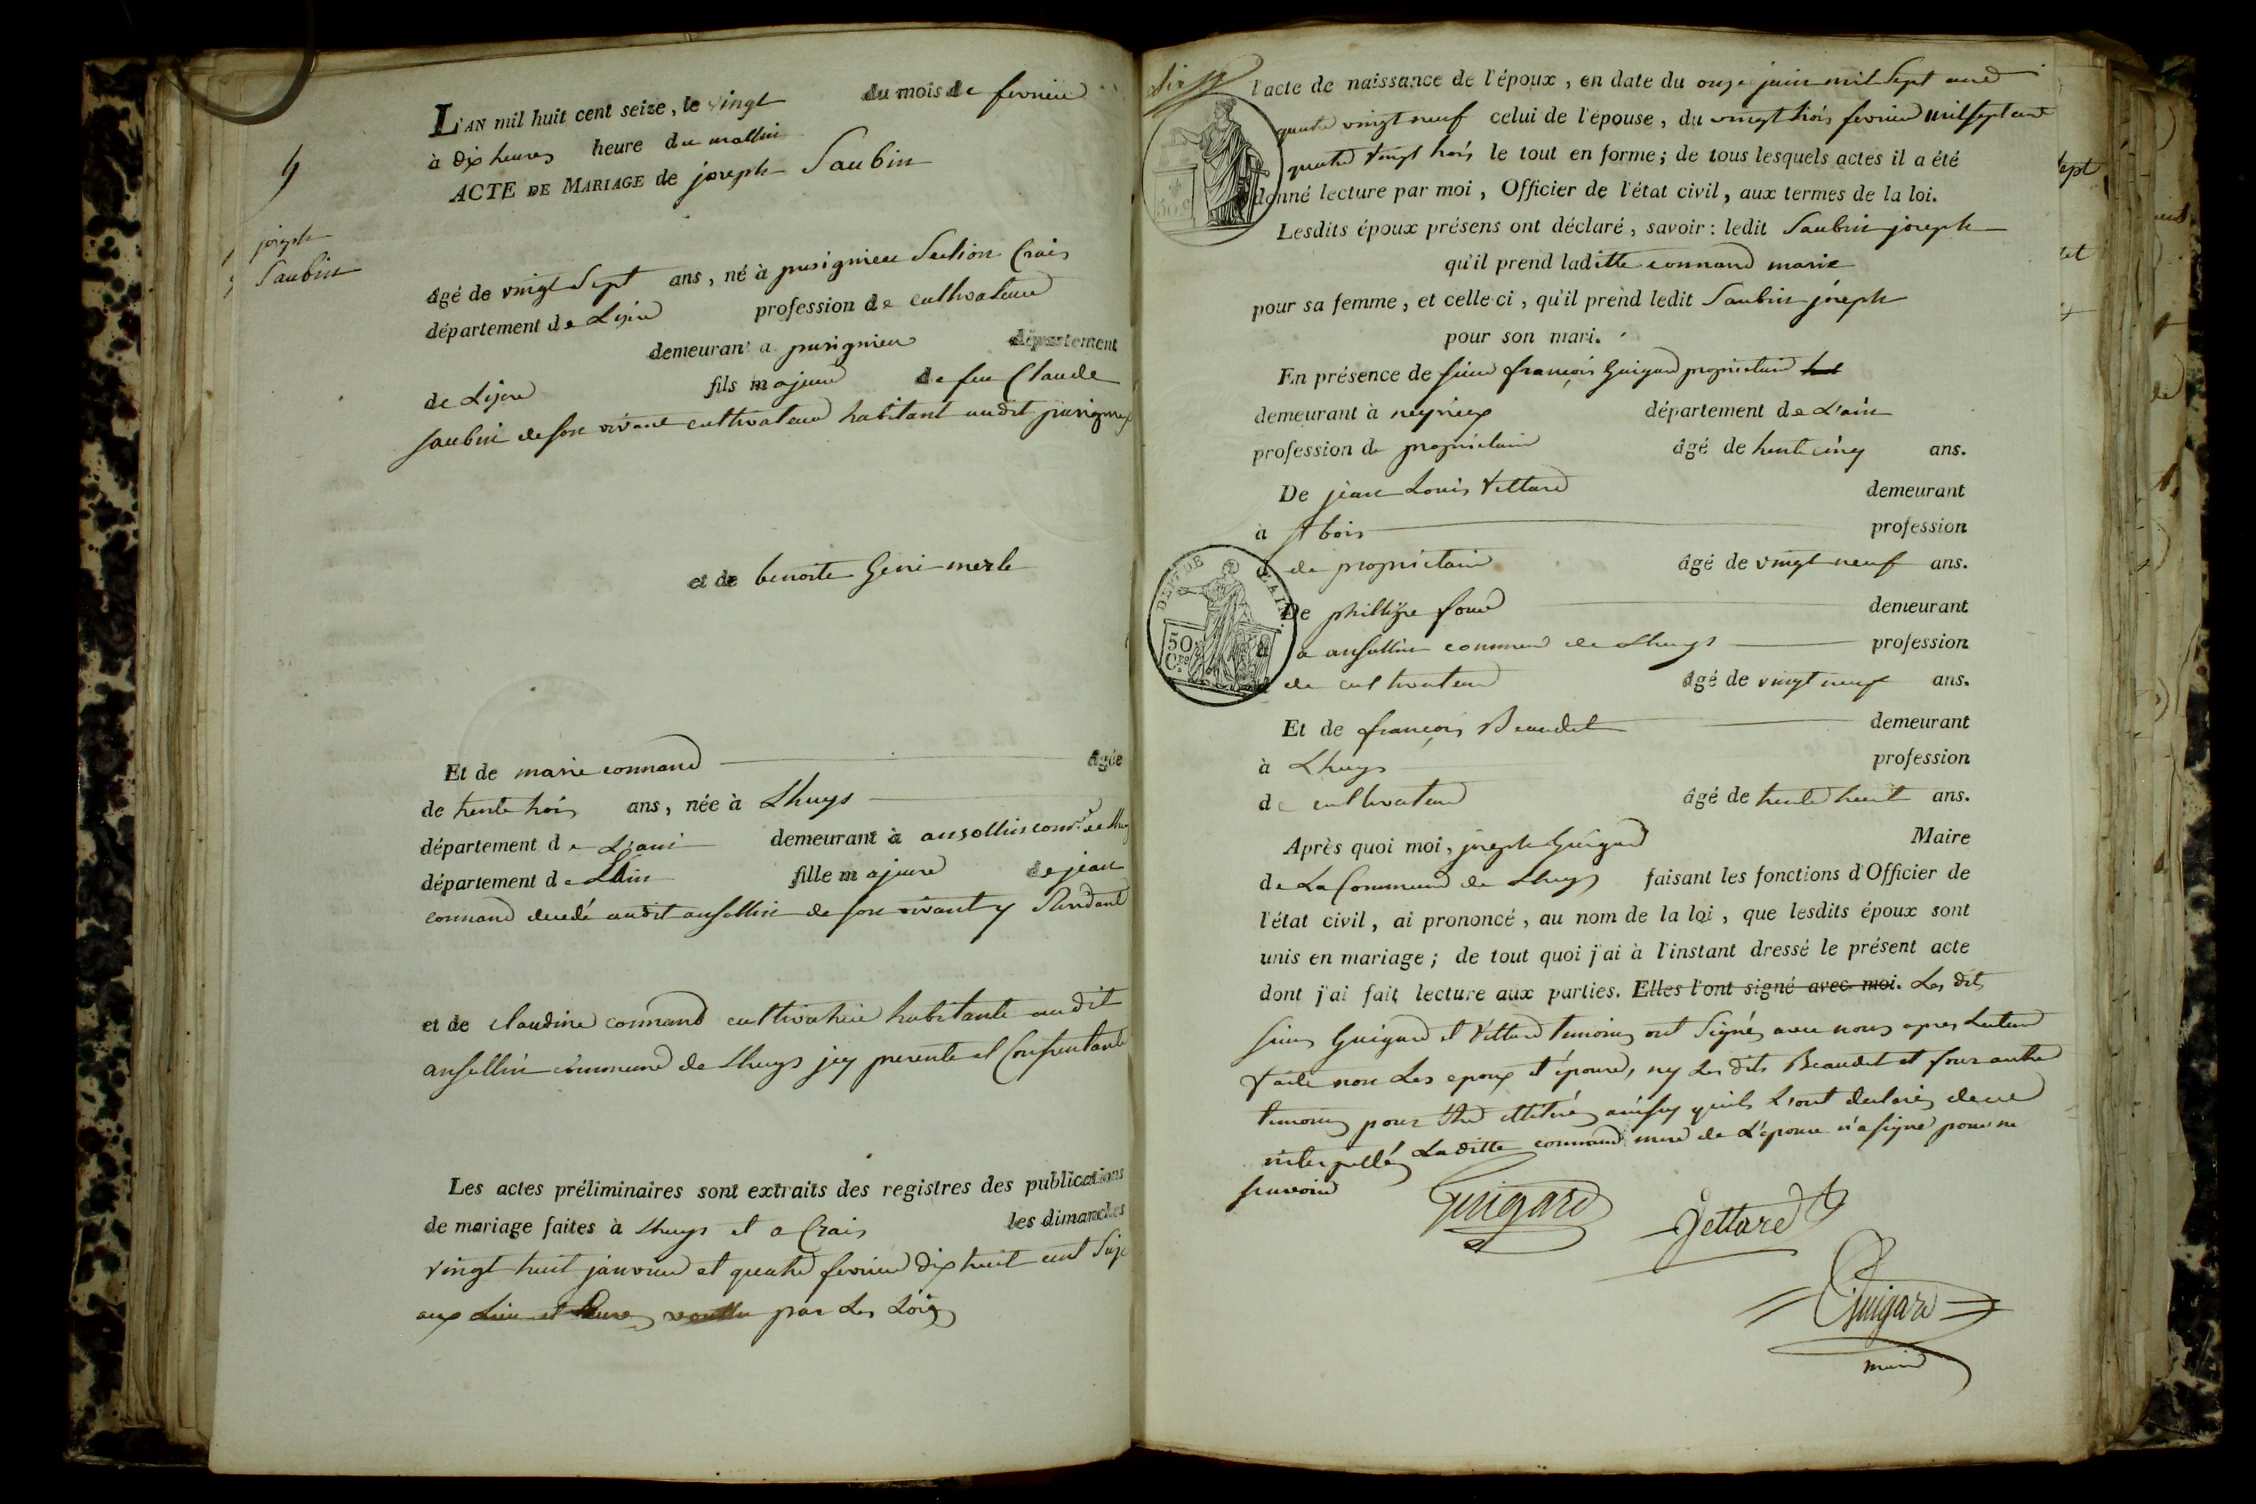 9
joseph
Saubin
L'AN mil huit cent seize, le vingt du mois de fevrier
à dix heures heure du mattin
ACTE DE MARIAGE de joseph Saubin
âgé de vingt Sept ans, né à pusignieu Section Crais
département de Lisere profession de cultivateur
demeurant a pusignieu département
de Lisere fils majeur de feu Claude
saubin de son vivant cultivateur habitant audit pusignieu
et de benoite Geni merle
Et de marie connand âgée
de trente trois ans, née à Lhuys
département de L'ain demeurant à ansollin comne de Lhuys
département de Lain fille majeure de jean
connand decedé audit ansollin de son vivant y
et de claudine connand cultivatrice habitante audit
ansollin commune de Lhuys jcy presente et Consentante
Les actes préliminaires sont extraits des registres des publications
de mariage faites à Lhuys et a Crais les dimanches
vingt huit janvier et quatre fevrier dix huit cent Saize
aux Lieu et heures voullu par Les Lois
l'acte de naissance de l'époux, en date du onze juin mil Sept cent
quatre vingt neuf celui de l'épouse, du vingt trois fevrier mil sept cent
quatre vingt trois le tout en forme; de tous lesquels actes il a été
donné lecture par moi, Officier de l'état civil, aux termes de la loi.
Lesdits époux présens ont déclaré, savoir: ledit Saubin joseph
qu'il prend laditte connand marie
pour sa femme, et celle-ci, qu'il prend ledit Saubin joseph
pour son mari.
En présence de sieur françois Guigard proprietaire
demeurant à neyrieux département de L'ain
profession de proprietaire âgé de trente cinq ans.
De jean Louis Vettard demeurant
à St bois profession
de proprietaire âgé de vingt neuf ans.
DEPT DE L'AIN.
50 Ces
De phillipe four demeurant
à a ansollin commune de Lhuys profession
de cultivateur âgé de vingt neuf ans.
Et de françois Beaudet demeurant
à Lhuys profession
de cultivateur âgé de trente huit ans.
Après quoi moi, joseph Guigard Maire
de La Commune de Lhuys faisant les fonctions d'Officier de
l'état civil, ai prononcé, au nom de la loi, que lesdits époux sont
unis en mariage; de tout quoi j'ai à l'instant dressé le présent acte
dont j'ai fait lecture aux parties. Elles l'ont signé avec moi. Les dits
sieurs Guigard et Vettard temoins ont Signés avec nous apres Lecture
faite non Les epoux et épouse, ny Les dits Beaudet et four autre
temoins pour etre illitéré ainsy quils L'ont declarés de ce
interpellés Laditte connand mere de L'épouse n'a signé pour ne
scavoir
Guigard
Vettard
Guigard
maire